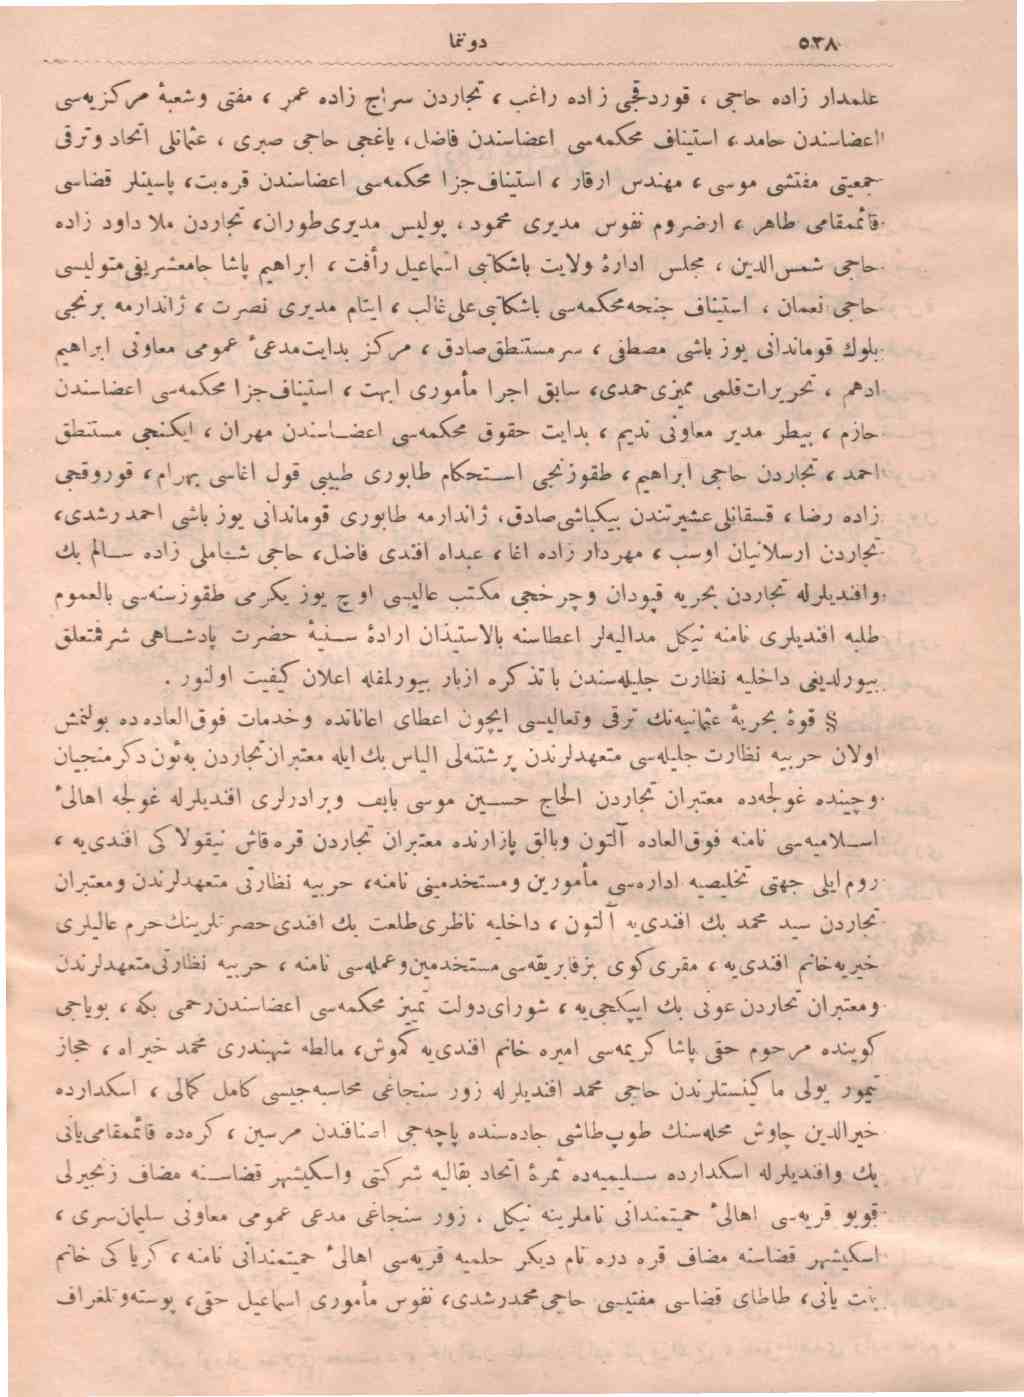 ٥٣٨
دوننما
علمدار زاده حاجی ، قوردقجی زاده راغب ، تجاردن سراج زاده عمر ، مفتی وشعبهٔ مركزیه‌سی
اعضاسندن حامد ، استیناف محكمه‌سی اعضاسندن فاضل ، یاغجی حاجی صبری ، عثمانلی اتحاد وترقی
جمعیتی مفتشی موسی ، مهندس ارقار ، استیناف جزا محكمه‌سی اعضاسندن قره‌بت ، پاسینلر قضاسی
قائممقامی طاهر ، ارضروم نفوس مدیری محمود ، پولیس مدیری طوران ، تجاردن ملا داود زاده
حاجی شمس‌الدین ، مجلس ادارهٔ ولایت باشكاتبی اسماعیل رأفت ، ابراهیم پاشا جامعشریفی متولیسی
حاجی نعمان ، استیناف جنحه محكمه‌سی باشكاتبی علی غالب ، ایتام مدیری نصرت ، ژاندارمه برنجی
بلوك قوماندانی یوز باشی مصطفی ، سر مستنطق صادق ، مركز بدایت مدعیٔ عمومی معاونی ابراهیم
ادهم ، تحریرات قلمی ممیزی حمدی ، سابق اجرا مأموری ابهت ، استیناف جزا محكمه‌سی اعضاسندن
حازم ، بیطر مدیر معاونی ندیم ، بدایت حقوق محكمه‌سی اعضاسندن مهران ، ایكنجی مستنطق
احمد ، تجاردن حاجی ابراهیم ، طقوزنجی استحكام طابوری طبیبی قول اغاسی بهرام ، قوروقجی
زاده رضا ، قسقانلی عشیرتندن بیكباشی صادق ، ژاندارمه طابوری قوماندانی یوز باشی احمد رشدی ،
تجاردن ارسلانیان اوسب ، مهردار زاده اغا ، عبداه افندی فاضل ، حاجی شاملی زاده سالم بك
وافندیلرله تجاردن بحریه قپودان وچرخجی مكتب عالیسی اوچ یوز یكرمی طقوز سنه‌سی بالعموم
طلبه افندیلری نامنه نیكل مدالیه‌لر اعطاسنه بالاستیذان ارادهٔ سنیهٔ حضرت پادشاهی شرفتعلق
بیورلدیغی داخلیه نظارت جلیله‌سندن با تذكره ازبار بیورلمغله اعلان كیفیت اولنور .
§ قوهٔ بحریهٔ عثمانیه‌نك ترقی وتعالیسی ایچون اعطای اعاناتده وخدمات فوق‌العاده‌ده بولنمش
اولان حربیه نظارت جلیله‌سی متعهدلرندن پرشتنه‌لی الیاس بك ایله معتبران تجاردن به‌ئون دكرمنجیان
وچینده غولجه‌ده معتبران تجاردن الحاج حسین موسی بایف وبرادرلری افندیلرله غولجه اهالیٔ
اسلامیه‌سی نامنه فوق‌العاده آلتون وبالق پازارنده معتبران تجاردن قره قاش نیقولاكی افندی‌یه ،
روم ایلی جهتی تخلیصیه اداره‌سی مأمورین ومستخدمینی نامنه ، حربیه نظارتی متعهدلرندن ومعتبران
تجاردن سید محمد بك افندی‌یه آلتون ، داخلیه ناظری طلعت بك افندی حضرتلرینك حرم عالیلری
خیریه خانم افندی‌یه ، مقری كوی بز فابریقه‌سی مستخدمین وعمله‌سی نامنه ، حربیه نظارتی متعهدلرندن
ومعتبران تجاردن عونی بك ایپكجی‌یه ، شورای دولت تمییز محكمه‌سی اعضاسندن رحمی بكه ، بویاجی
كوینده مرحوم حقی پاشا كریمه‌سی امیره خانم افندی‌یه كموش ، مالطه شهبندری محمد خیر اه ، حجاز
تیمور یولی ماكنستلرندن حاجی محمد افندیلرله زور سنجاغی محاسبه‌جیسی كامل كمالی ، اسكدارده
خیرالدین چاوش محله‌سنك طوپ طاشی جاده‌سنده پاچه‌جی اصنافندن مرسین ، كره‌ده قائممقامی یانی
بك وافندیلرله اسكدارده سلیمیه‌ده ثمرهٔ اتحاد بقالیه شركتی واسكیشهر قضاسنه مضاف زنجیرلی
قویو قریه‌سی اهالیٔ حمیتمندانی ناملرینه نیكل ، زور سنجاغی مدعی عمومی معاونی سلیمان سری ،
اسكیشهر قضاسنه مضاف قره دره نام دیكر حلمیه قریه‌سی اهالیٔ حمیتمندانی نامنه ، كریاكی خانم
بنت یانی ، طاطای قضاسی مفتیسی حاجی محمد رشدی ، نفوس مأموری اسماعیل حقی ، پوسته وتلغراف